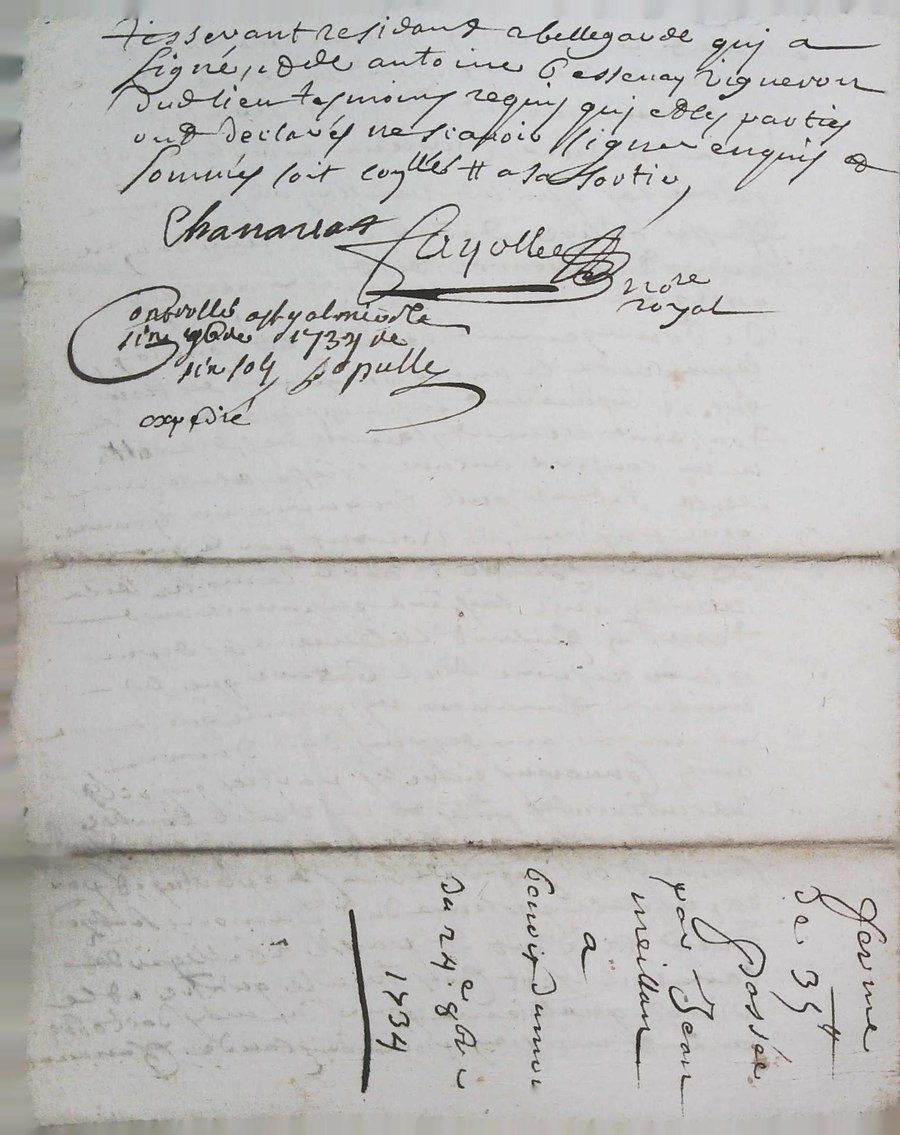 tisserant residant a bellegarde qui a
signé, et de antoine bessenay vigneron
dud lieu tesmoins requis qui et les parties
ont declarés ne scavoir signer enquis et
sommés soit conllé a sa sortie
Chavanat
Fayolle
nore
royal
Controllé a st galmier le
six 9bre 1734 de
six sols
expedié
ferme
de 35
passée
par Jean
meillan
a
benoist dumon
du 24e 8bre
1734